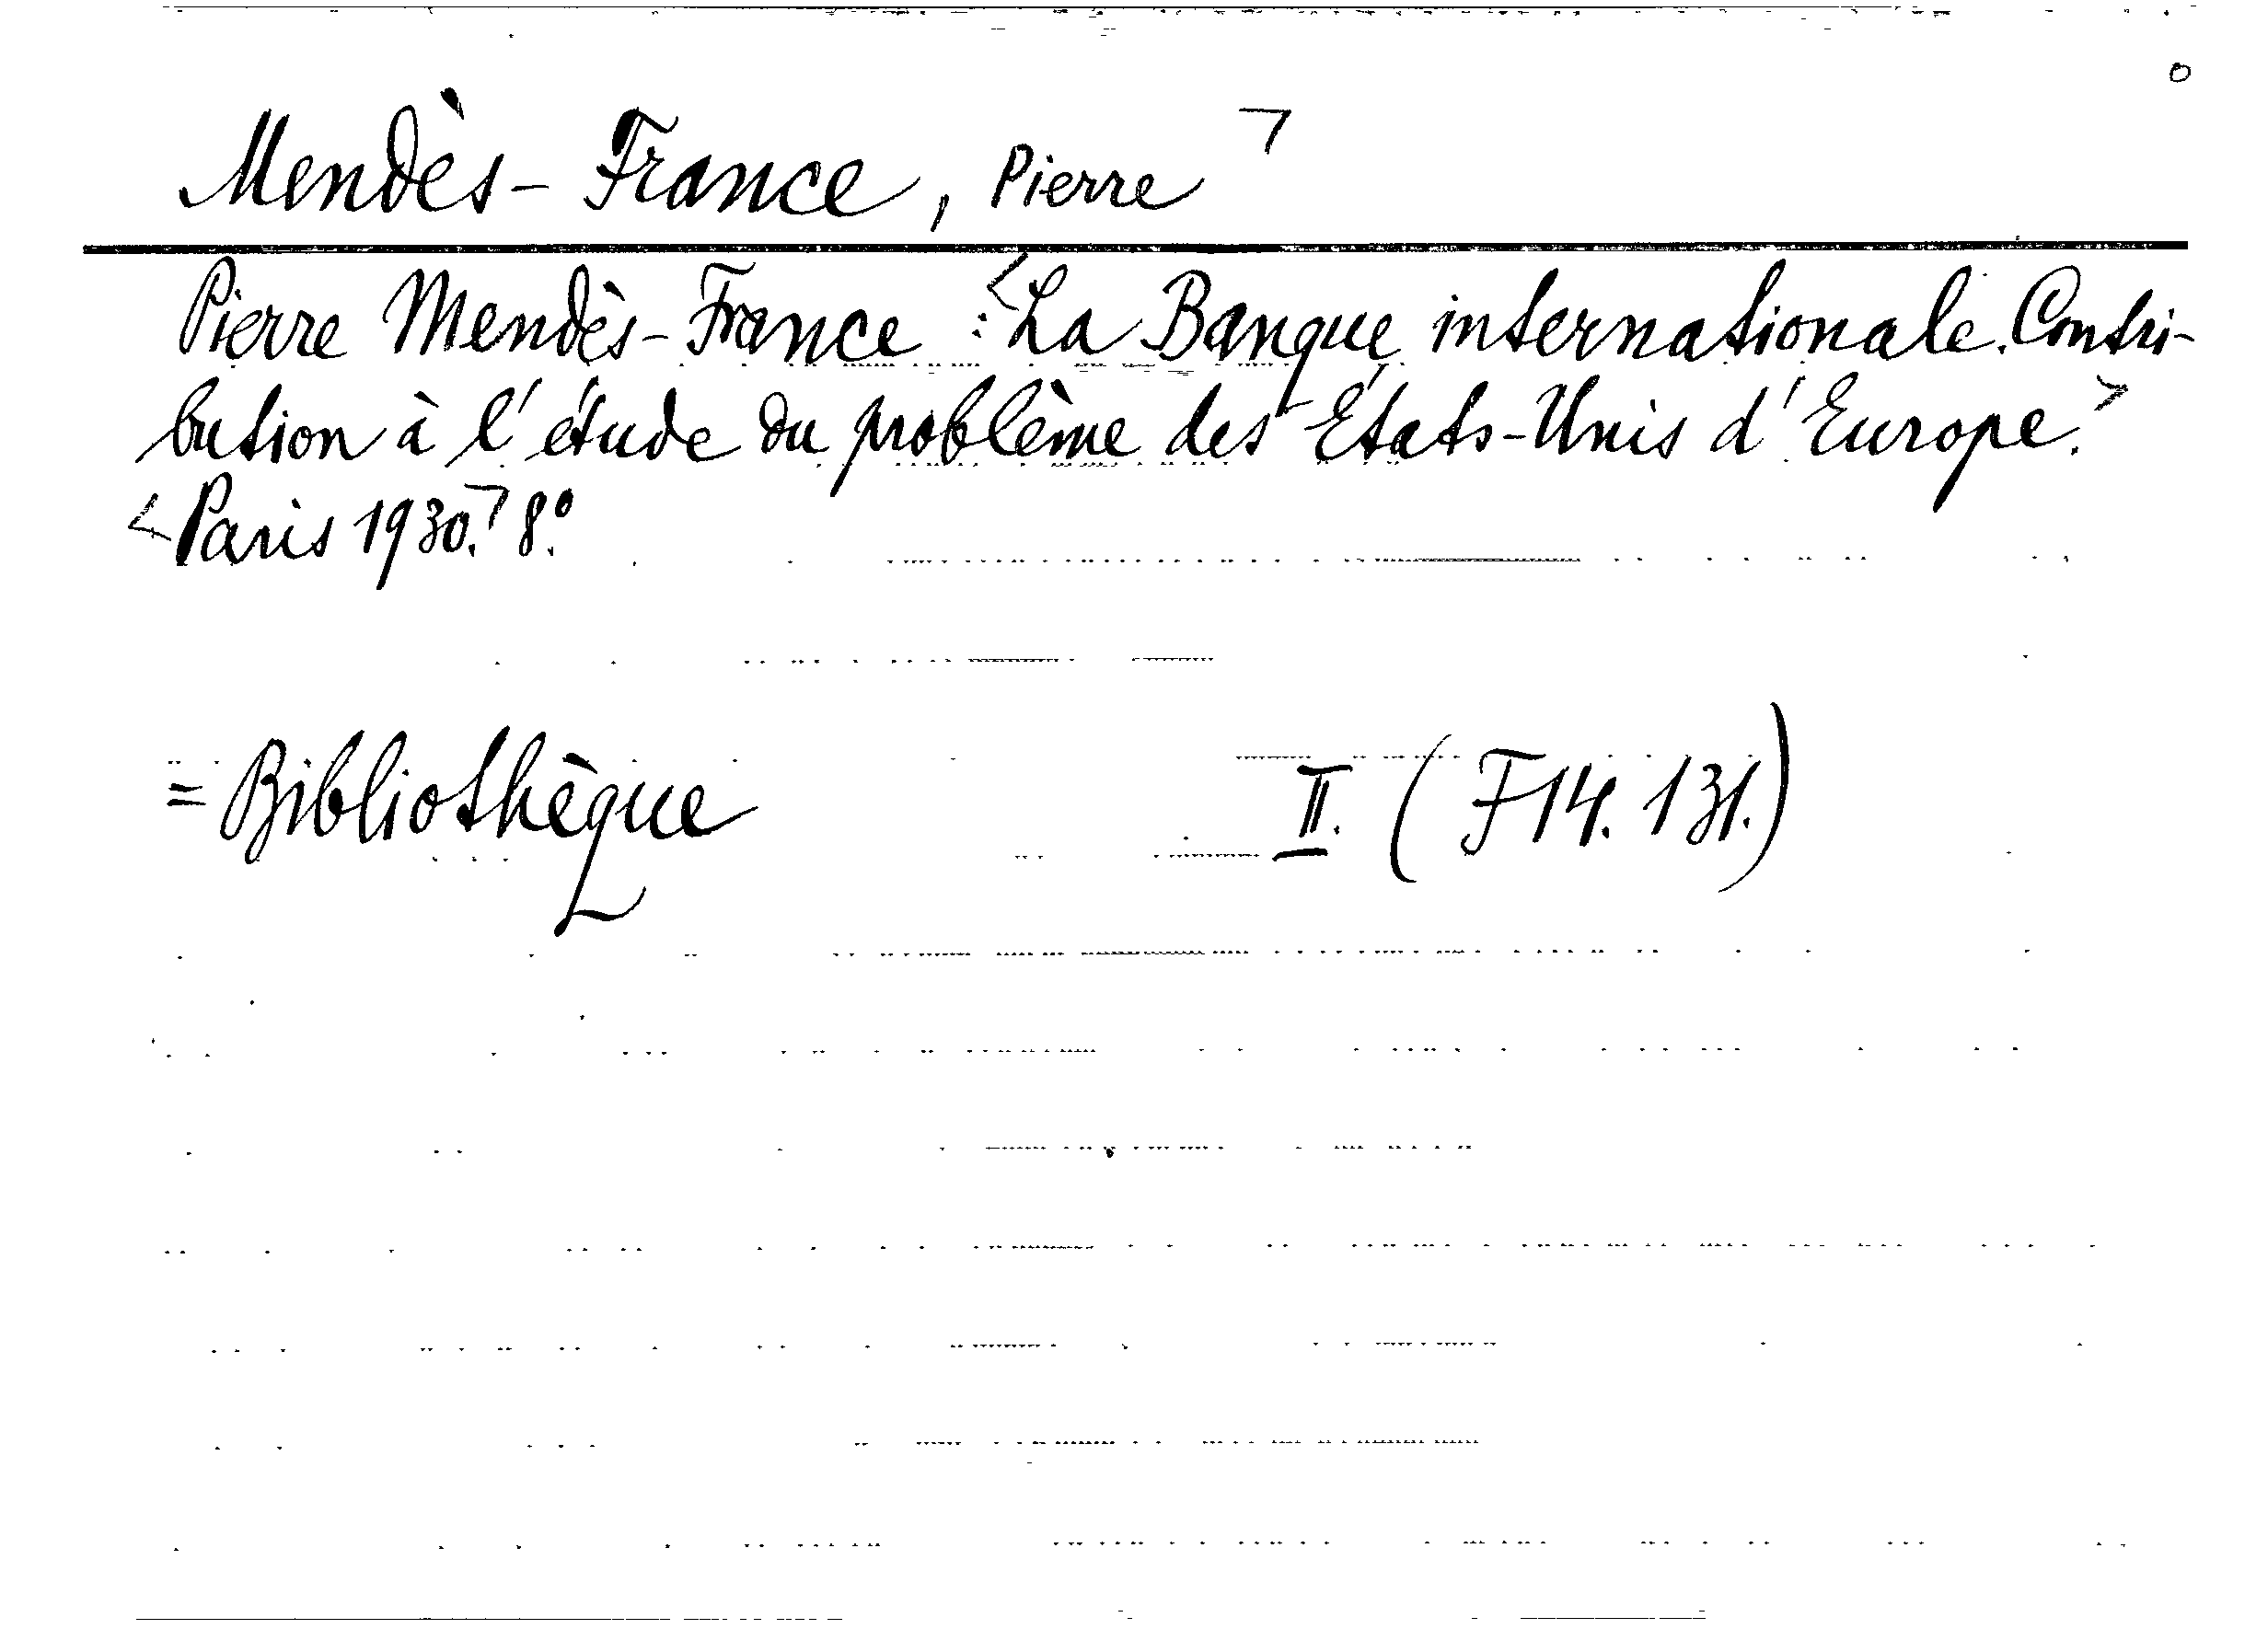 Mendès-France, Pierre ┐
Pierre Mendès-France : <La Banque internationale. Contri-
bution à l'étude du problème des États-Unis d'Europe.>
<Paris 1930.┐ 8.º
= Bibliothèque II. (F14. 131.)